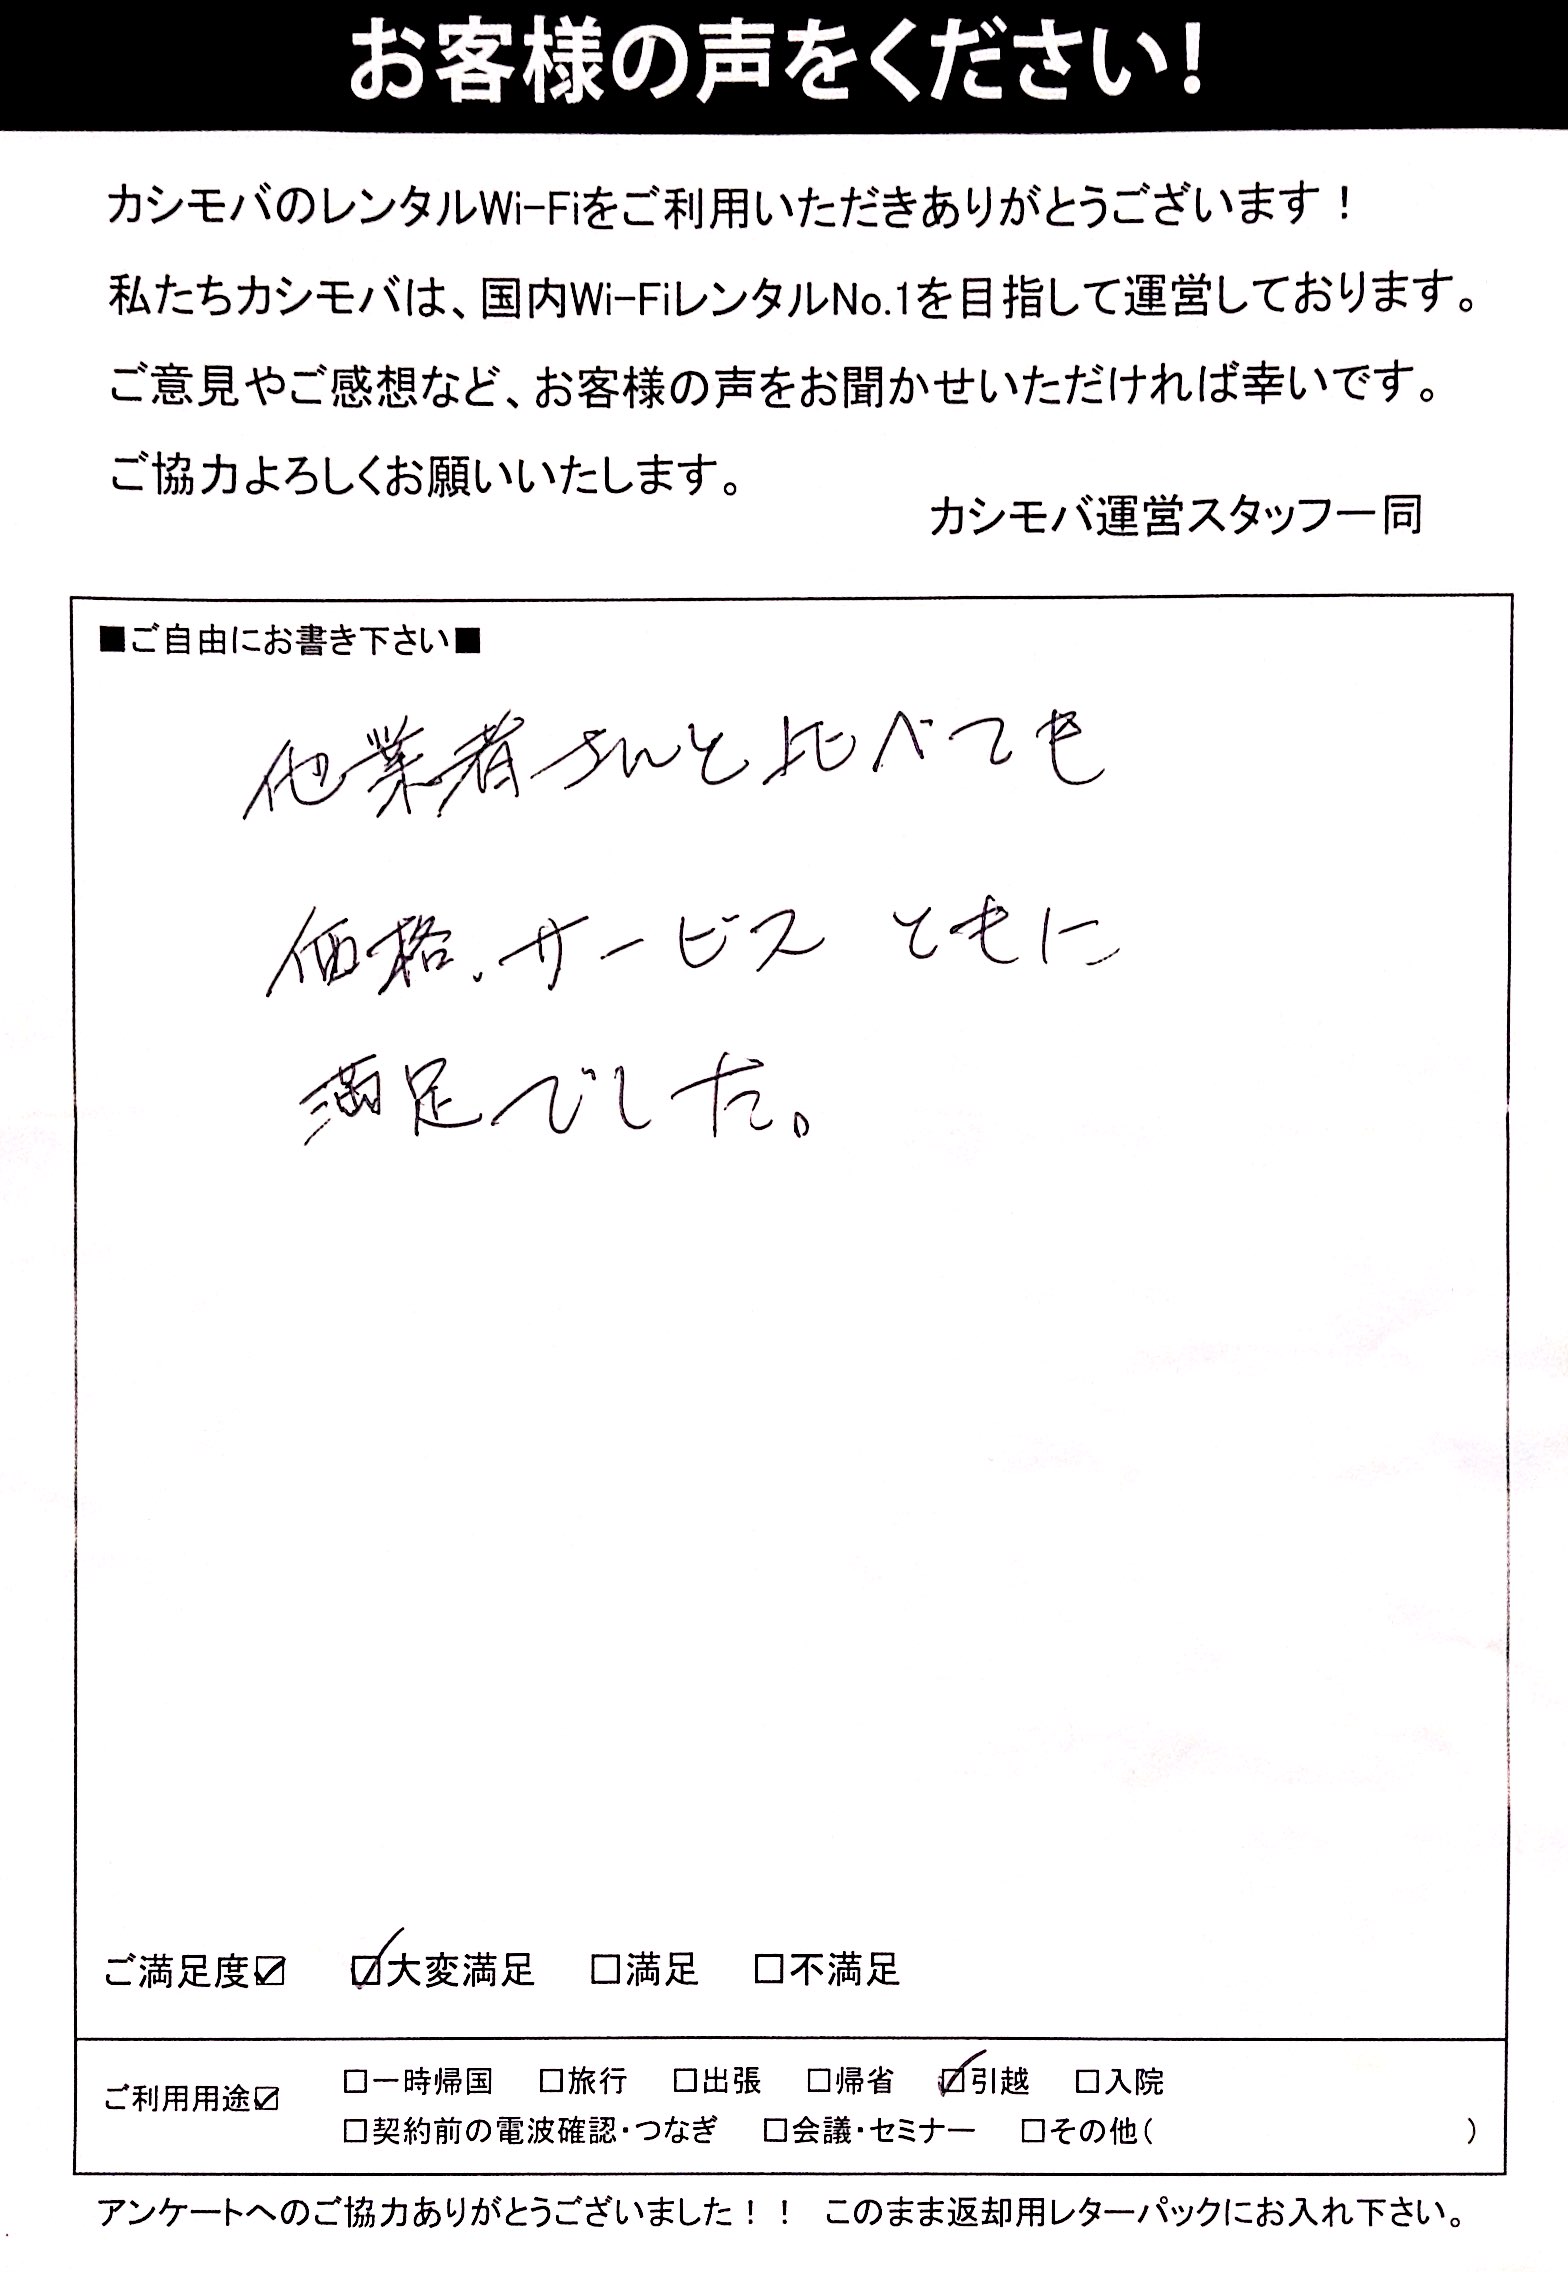 お客様の声をください!
カシモバのレンタルWi-Fiをご利用いただきありがとうございます！
私たちカシモバは、国内Wi-FiレンタルNo.1を目指して運営しております。
ご意見やご感想など、お客様の声をお聞かせいただければ幸いです。
ご協力よろしくお願いいたします。
カシモバ運営スタッフ一同
■ご自由にお書き下さい■
他業者さんと比べても
価格、サービス ともに
満足でした。
ご満足度☑ ☑大変満足 □満足 □不満足
ご利用用途☑ □一時帰国 □旅行 □出張 □帰省 ☑引越 □入院
□契約前の電波確認・つなぎ □会議・セミナー □その他( )
アンケートへのご協力ありがとうございました！！ このまま返却用レターパックにお入れ下さい。